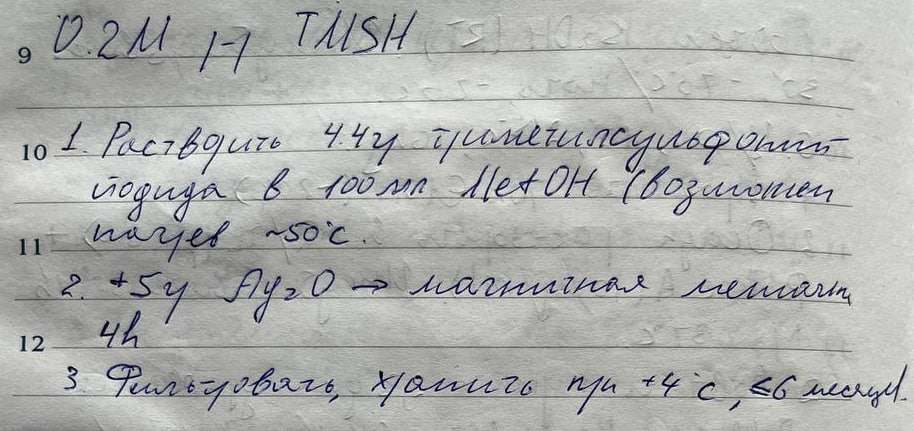 9 0.2M р-р TMSH
10 1. Растворить 4.4г триметилсульфоний
йодида в 100мл MetOH (возможен
нагрев ~50°C.
11
2. +5г Ag2O → магнитная мешалка
12 4h
3. Фильтровать, хранить при +4°C, ≤6 месяцев.